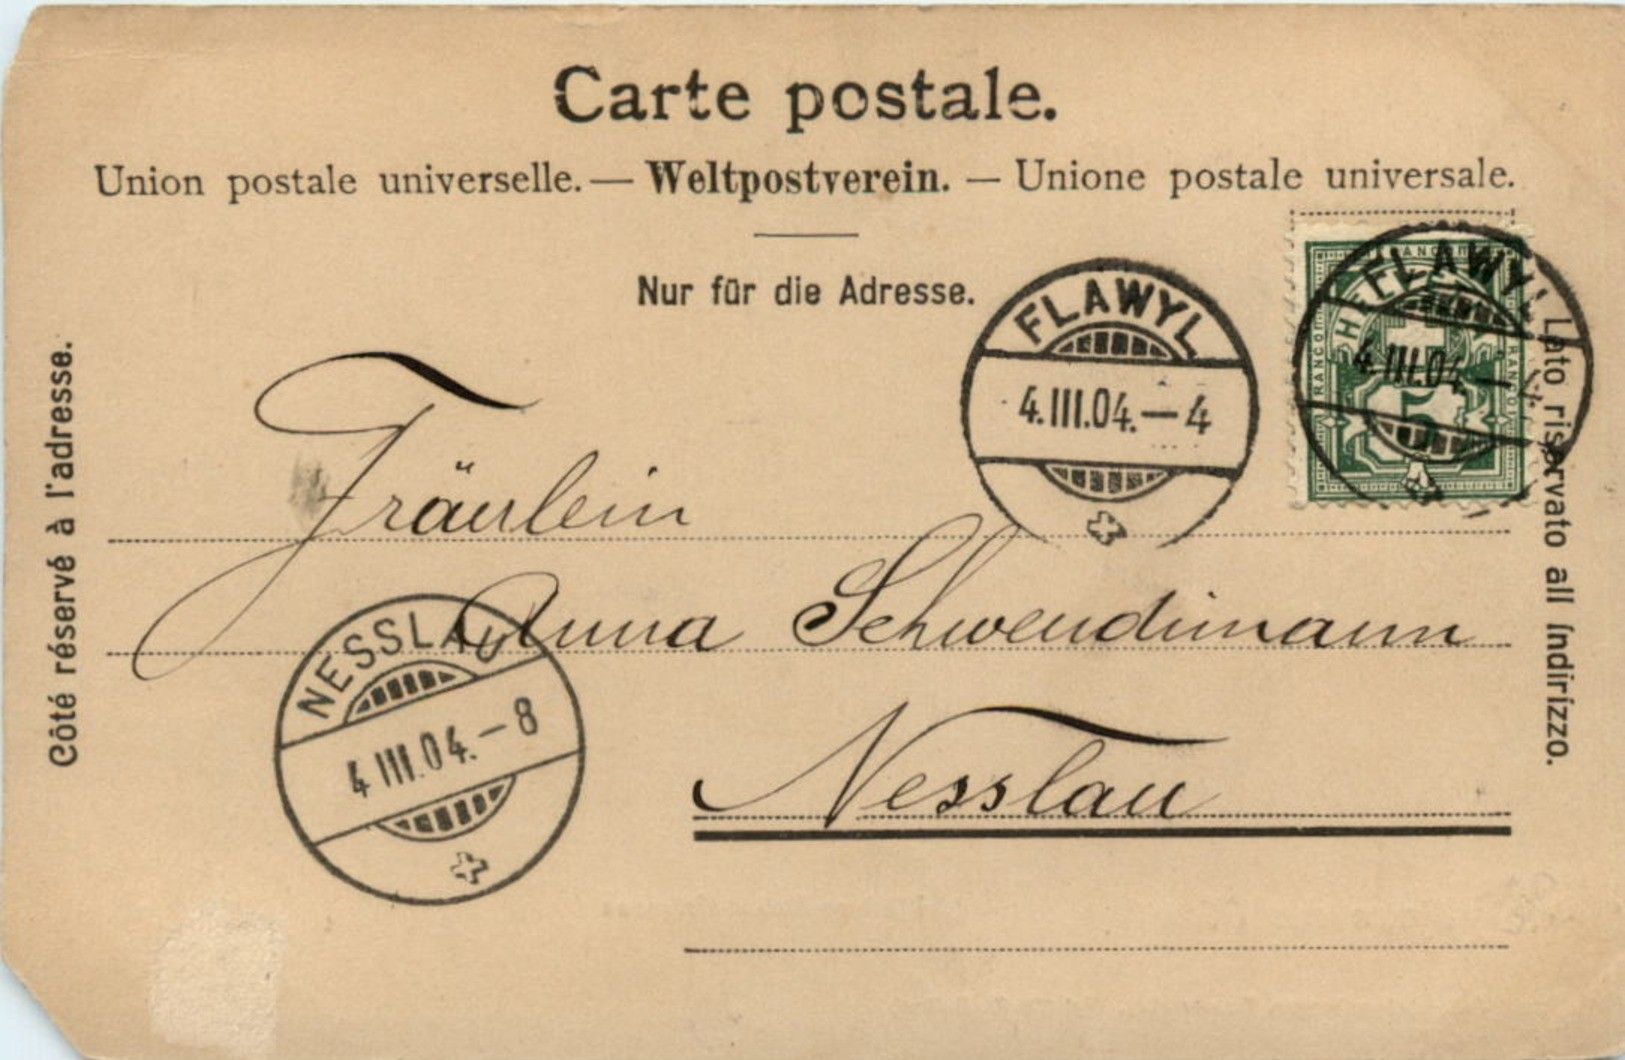 Carte postale.
Union postale universelle. — Weltpostverein. — Unione postale universale.
Nur für die Adresse.
Côté réservé à l'adresse.
Lato riservato all indirizzo.
FLAWYL
4.III.04.—4
FLAWYL
4.III.04.—4
HE
FRANCO
FRANCO
FRANCO
5
Fräulein
Anna Schwendimann
Nesslau
NESSLAU
4 III.04.—8